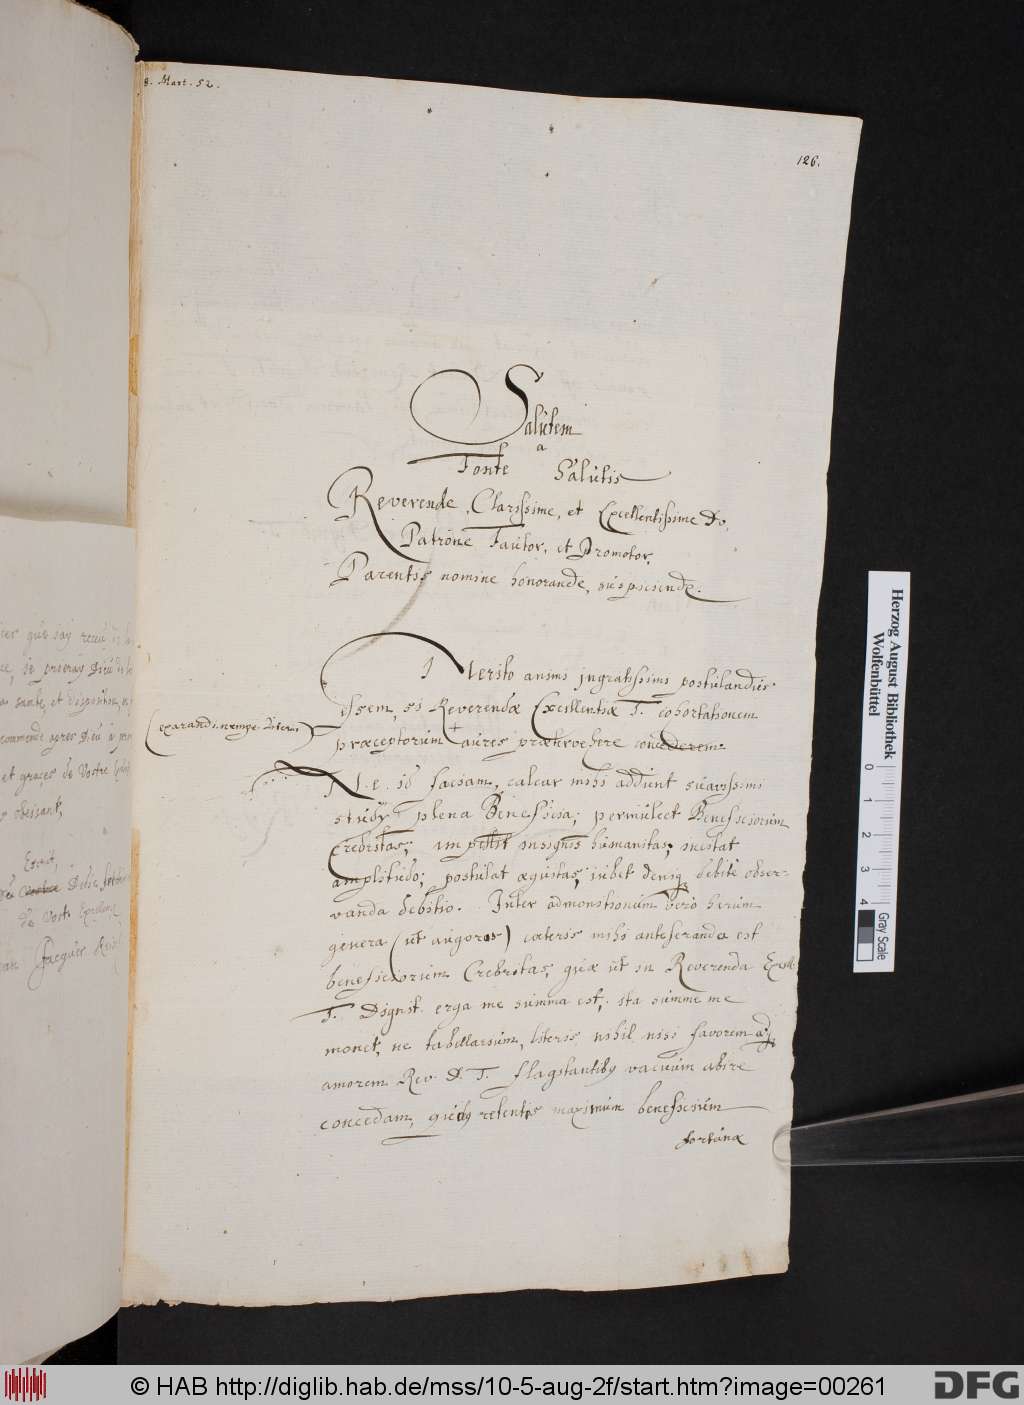 8. Mart. 52.
126.
Salutem
a
Fonte Salutis
Reverende, Clarissime, et Excellentissime Do,
Patrone Fautor, et Promotor,
Parentis nomine honorande, suspiciende.
Merito animi ingratissimi postulandus
essem, si Reverendæ Excellentiæ T. cohortationem
(exarandi nempe literas)
præceptorum + aures prætervehere concederem.
N. e. id faciam, calcar mihi addunt suavissimi
studij plena Beneficia; permulcet Beneficiorum
Crebritas; impellit insignis humanitas; incitat
amplitudo; postulat æquitas; iubet deniq debite obser-
vanda debitio. Inter admonitionum vero harum
genera (ut auguror) cæteris mihi anteferanda est
beneficiorum Crebritas, quæ ut in Reverenda Excell.
T. Dignit. erga me summa est, ita summe me
monet, ne tabellarium, literis, nihil nisi favorem
amorem Rev. D. T. flagitantibus vacuum abire
concedam, quibus retentis maximum beneficium
fortunæ
que jay receu
je prieray Dieu
sante, et disposition,
commende apres Dieu à
et graces de Vostre
obeissant,
Escrit,
de Vostr Excellence
Jacques
Herzog August Bibliothek
Wolfenbüttel
0 1 2 3 4
Gray Scale
© HAB http://diglib.hab.de/mss/10-5-aug-2f/start.htm?image=00261
DFG